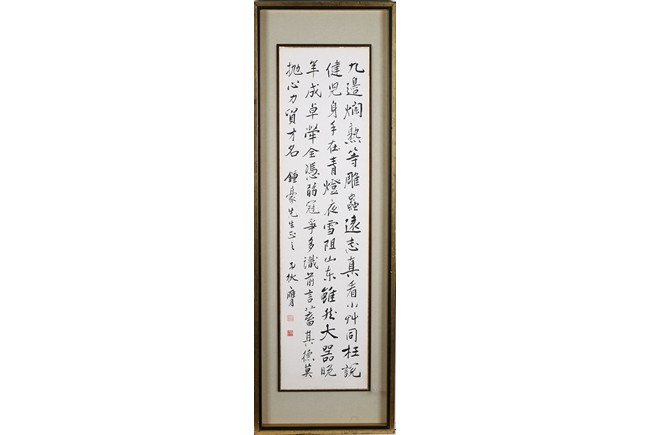 九邊爛熟等雕蟲遠志真看小艸同枉說
健兒身手在青燈夜雪阻山东雖然大器晚
年成卓犖全憑弱冠爭多識前言蓄其德莫
拋心力貿才名 鍾豪先生正之 弟狄膺